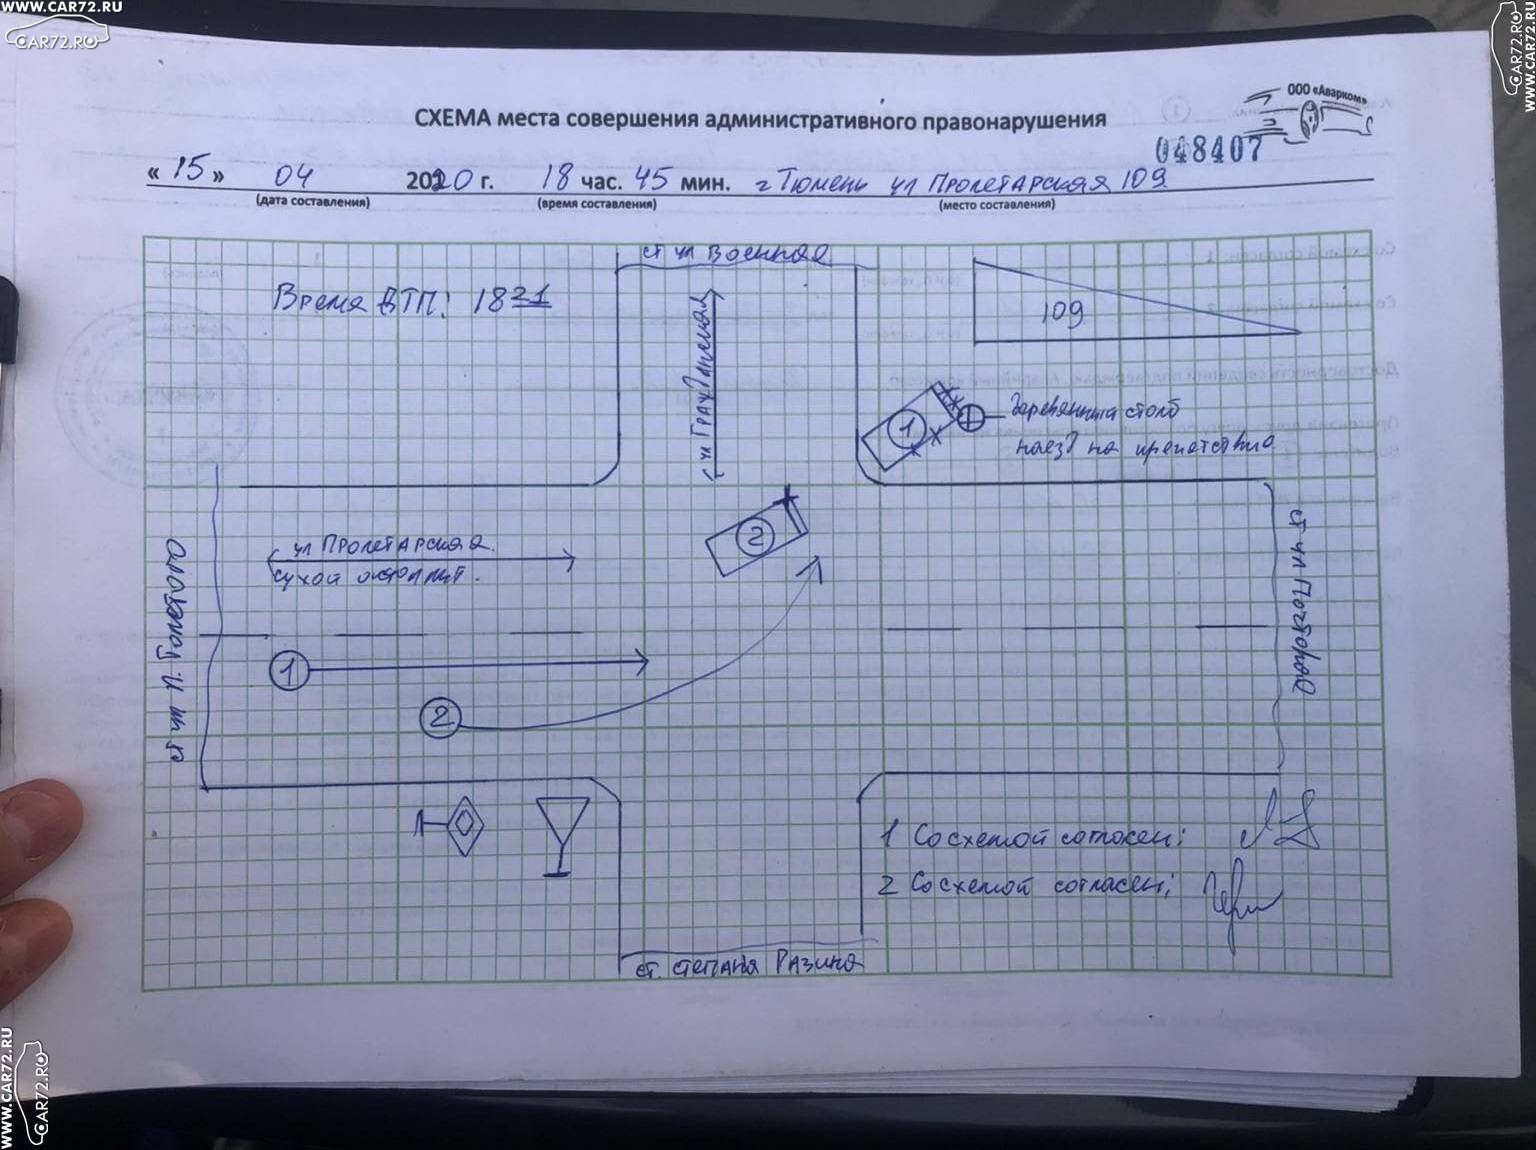 WWW.CAR72.RU
CAR72.RO
ООО «Аварком»
СХЕМА места совершения административного правонарушения
048407
« 15 » 04 2020 г. 18 час. 45 мин. г Тюмень ул Пролетарская 109
(дата составления) (время составления) (место составления)
ст ул Военная
Время ДТП: 18 21
109
ул Гражданская
1
деревянный столб
наезд на препятствие
2
ул Пролетарская
сухой асфальт.
1
2
1 Со схемой согласен:
2 Со схемой согласен;
ст. Степана Разина
WWW.CAR72.RU
CAR72.RO
WWW.CAR72.RU
CAR72.RO